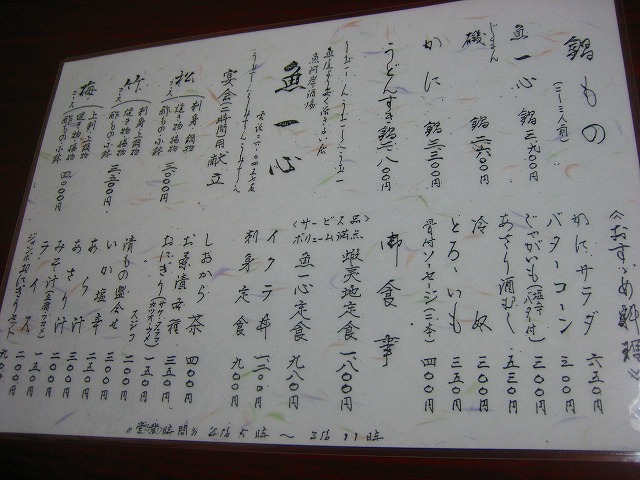 鍋もの
(二〜三人前)
魚一心鍋 三九〇〇円
磯鍋 二六〇〇円
かに鍋 二三〇〇円
うどんすき鍋 一八〇〇円
魚河岸酒場
魚一心
宴会二時間用献立
松コース
刺身 鍋物
焼き物 揚物
酢もの 小鉢
三〇〇〇円
竹コース
刺身 上鍋物
焼き物 揚物
酢もの 小鉢
三五〇〇円
梅コース
上刺 上鍋物
焼き物 揚物
酢もの 小鉢
四〇〇〇円
《おすゝめ料理》
かにサラダ 六五〇円
バターコーン 三〇〇円
じゃがいも(塩辛バター付) 三〇〇円
あさり酒むし 五三〇円
冷奴 三〇〇円
とろゝいも 三五〇円
骨付ソーセージ(三本) 四〇〇円
御食事
<サービス品>
ボリューム満点
蝦夷地定食 一八〇〇円
魚一心定食 九八〇円
イクラ丼 一二〇〇円
刺身定食 九〇〇円
しおから茶 四〇〇円
お茶漬各種 三五〇円
おにぎり 一五〇円
漬もの盛合せ
いか塩辛
あら汁
あさり汁
みそ汁
ライス
《営業時間》午後5時〜午後11時